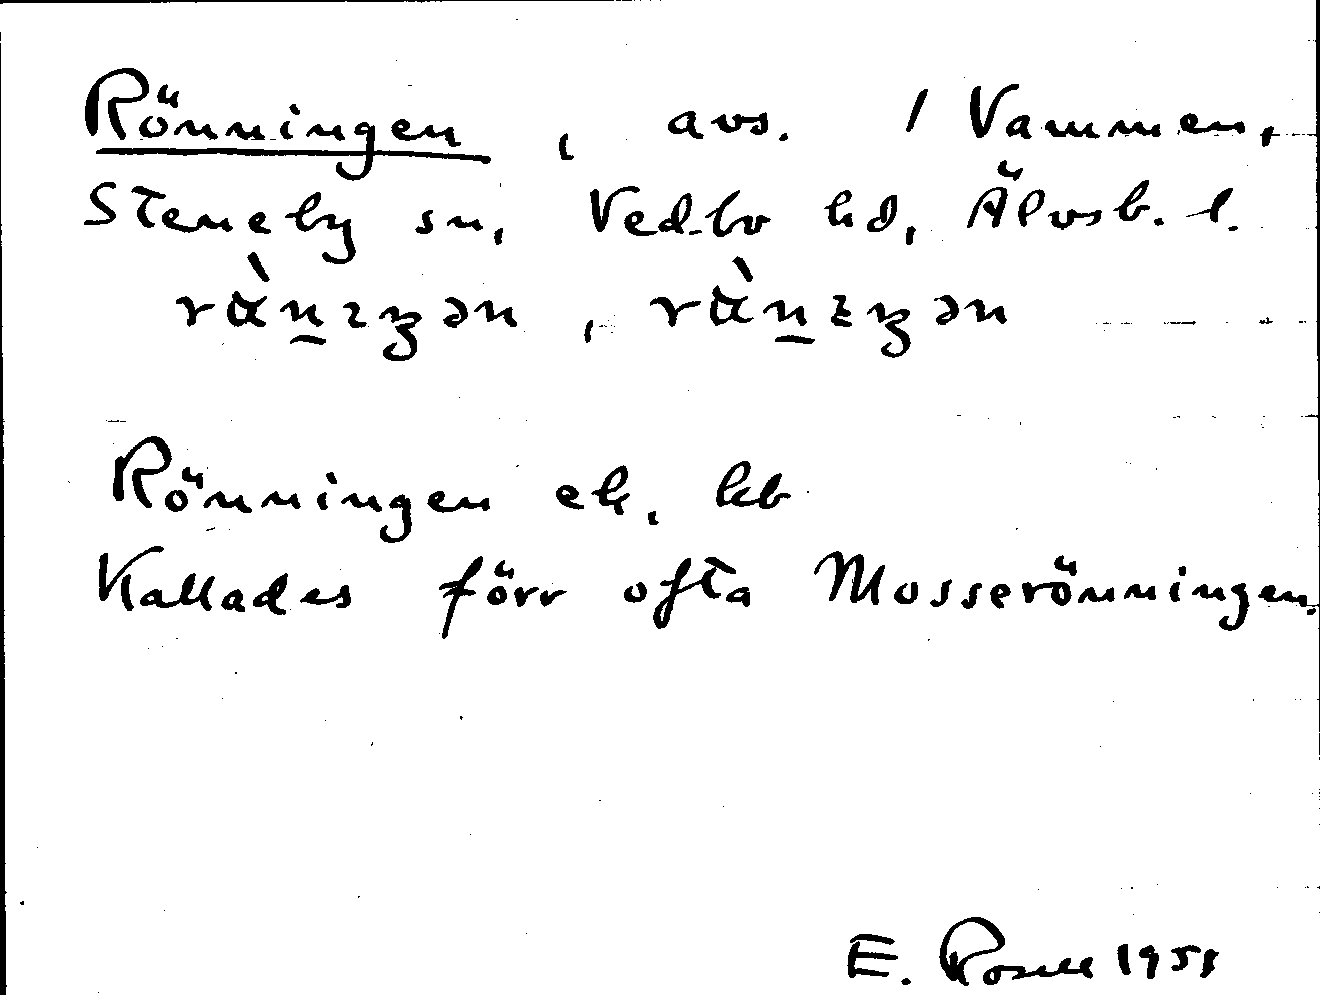 Rönningen, avs. / Vammen,
Steneby sn, Vedbo hd, Älvsb. l.
Rönningen ek, kb
Kallades förr ofta Mosserönningen.
E. Rosell 1951